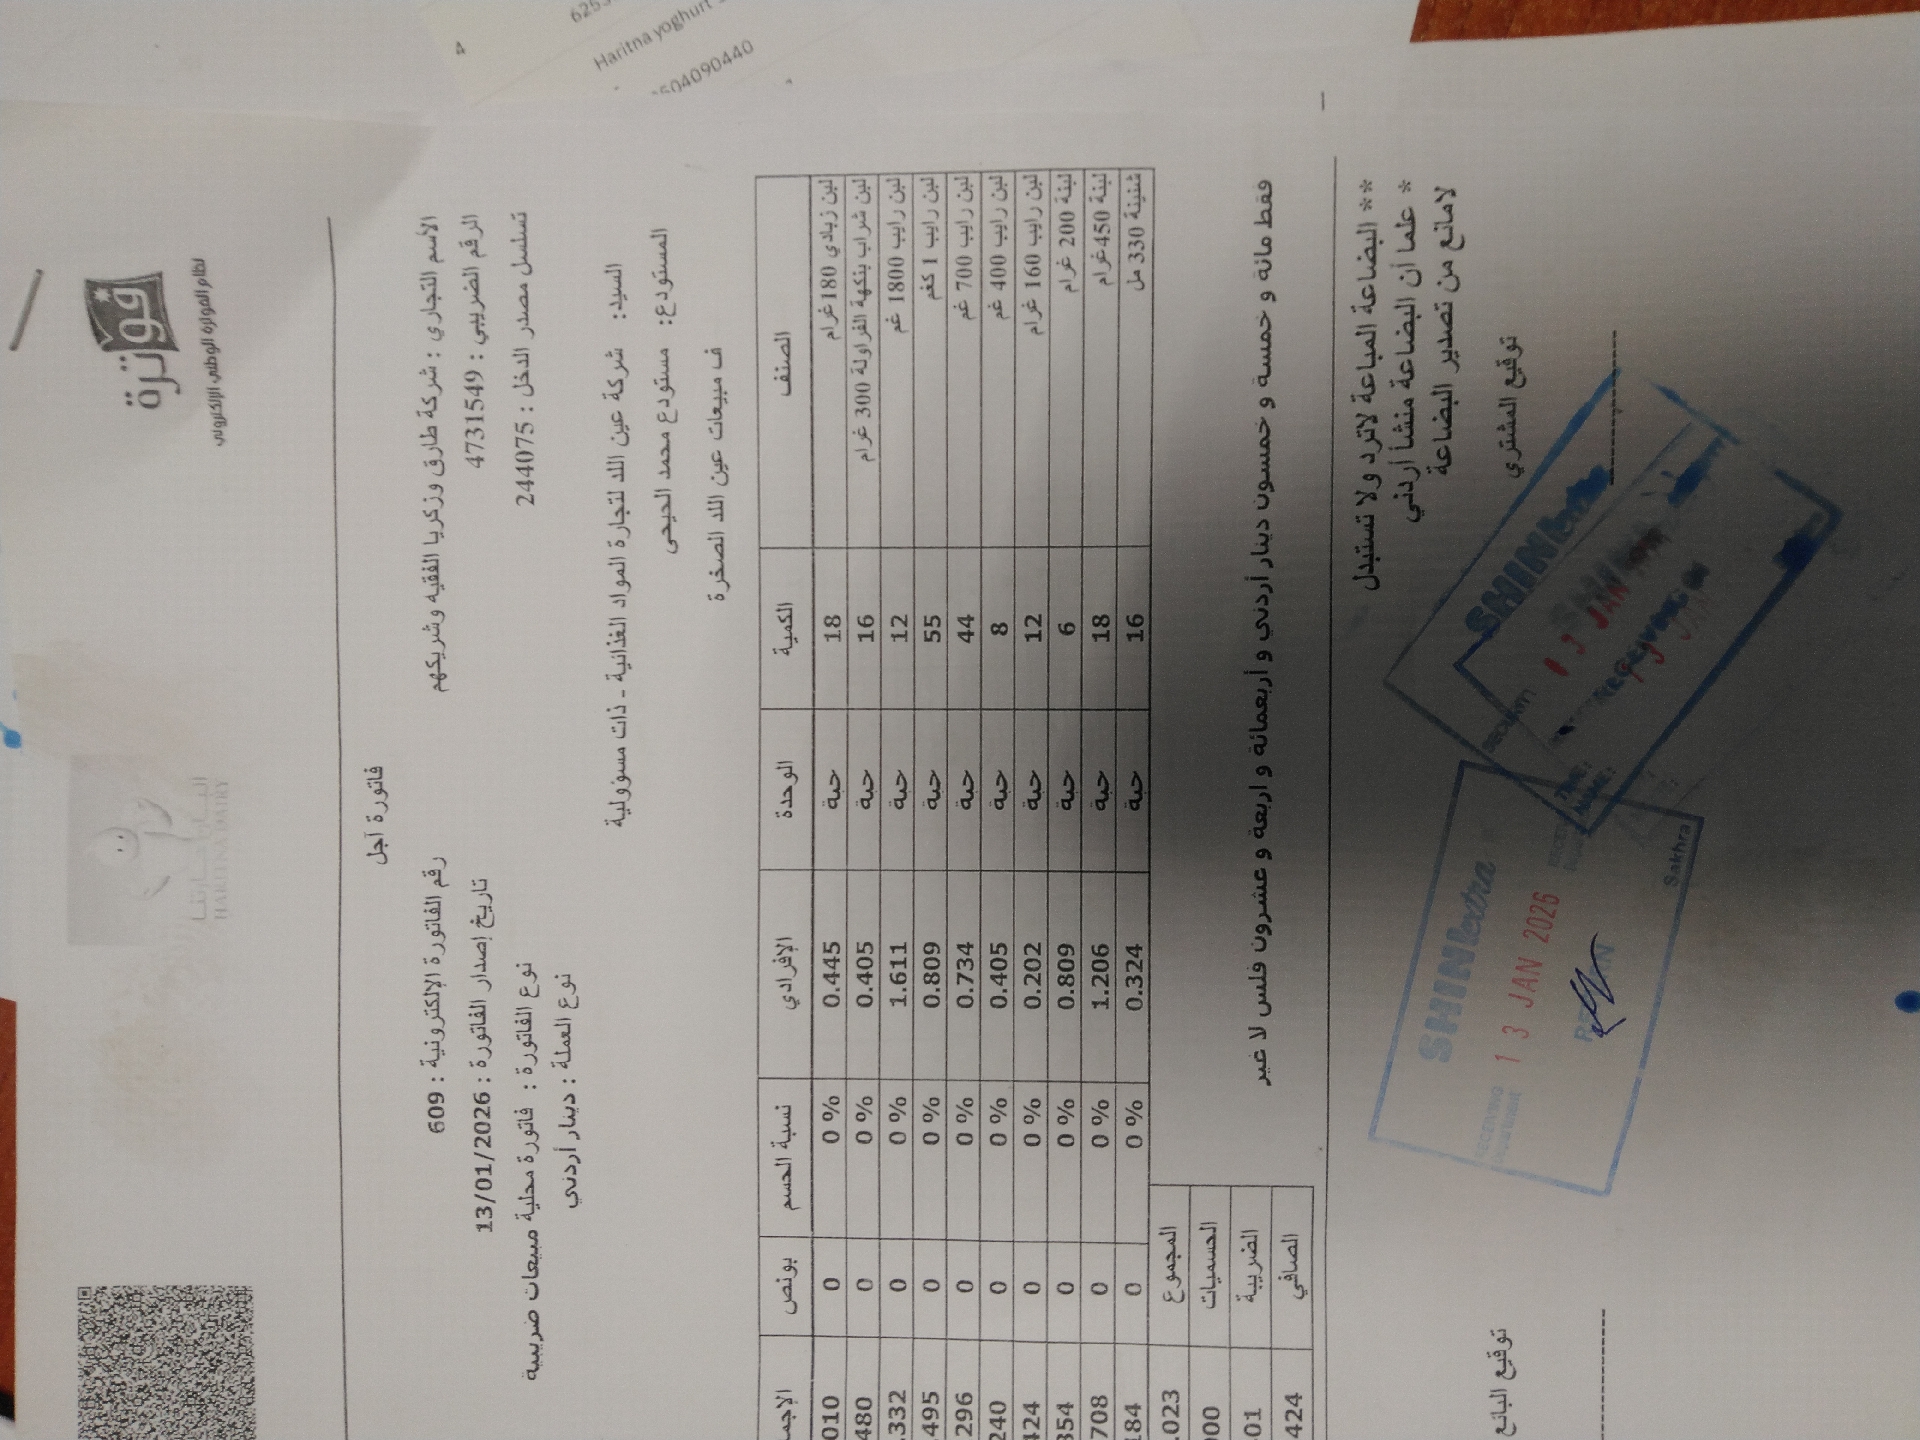 4
Haritna yoghurt
504090440
فوترة
نظام الفوترة الوطني الإلكتروني
HARETNA DAIRY
فاتورة آجل
الأسم التجاري : شركة طارق وزكريا الفقيه وشريكهم
رقم الفاتورة الإلكترونية : 609
الرقم الضريبي : 4731549
تاريخ إصدار الفاتورة : 13/01/2026
تسلسل مصدر الدخل : 244075
نوع الفاتورة : فاتورة محلية مبيعات ضريبية
نوع العملة : دينار أردني
السيد: شركة عين اللد لتجارة المواد الغذائية - ذات مسؤولية
المستودع: مستودع محمد الحيحى
ف مبيعات عين اللد الصخرة
الصنف الكمية الوحدة الإفرادي نسبة الحسم بونص الإجم
لبن زبادي 180غرام 18 حبة 0.445 0 % 0 010
لبن شراب بنكهة الفراولة 300 غرام 16 حبة 0.405 0 % 0 480
لبن رايب 1800 غم 12 حبة 1.611 0 % 0 .332
لبن رايب 1 كغم 55 حبة 0.809 0 % 0 .495
لبن رايب 700 غم 44 حبة 0.734 0 % 0 296
لبن رايب 400 غم 8 حبة 0.405 0 % 0 240
لبن رايب 160 غرام 12 حبة 0.202 0 % 0 424
لبنة 200 غرام 6 حبة 0.809 0 % 0 354
لبنة 450غرام 18 حبة 1.206 0 % 0 708
شنينة 330 مل 16 حبة 0.324 0 % 0 184
المجموع .023
الحسميات 000
الضريبة 01
الصافي 424
فقط مائة و خمسة و خمسون دينار أردني و أربعمائة و اربعة و عشرون فلس لا غير
** البضاعة المباعة لاترد ولا تستبدل
* علما أن البضاعة منشأ أردني
لامانع من تصدير البضاعة
توقيع المشتري
توقيع البائع
SHINIextra
13 JAN
RECEIVING
SHINIextra
13 JAN 2026
RECEIVING
Sakhra